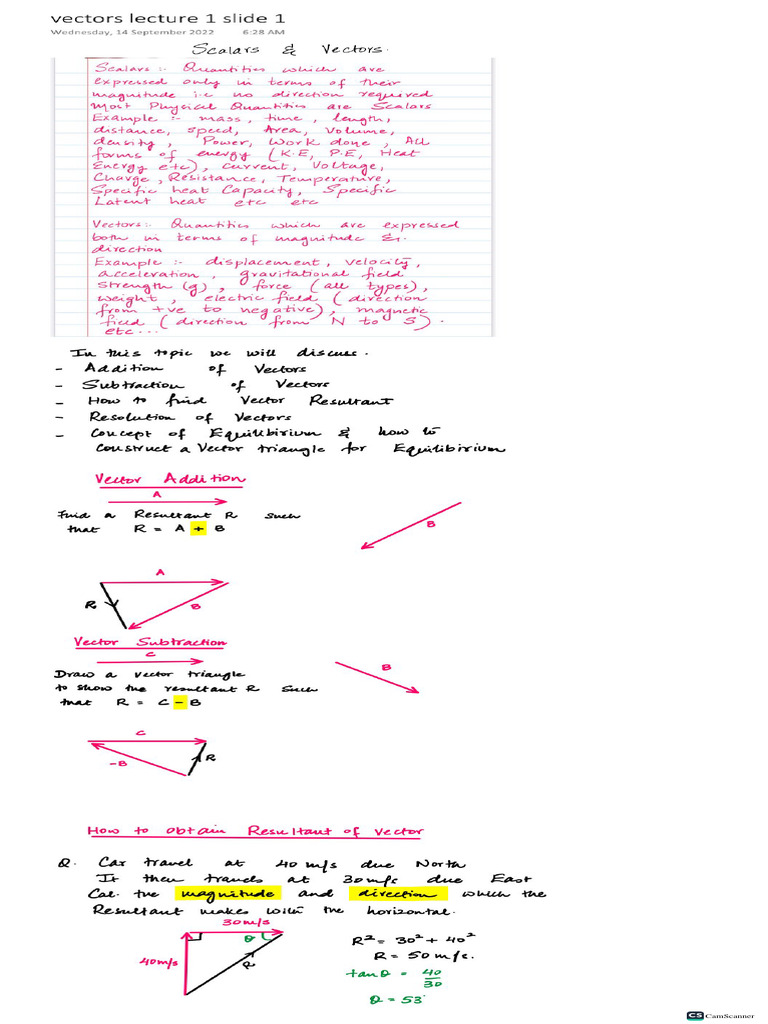 vectors lecture 1 slide 1
Wednesday, 14 September 2022 6:28 AM
Scalars & Vectors.
Scalars :- Quantities which are
expressed only in terms of their
magnitude i.e no direction required
Most Physical Quantities are Scalars
Example :- mass, time, length,
distance, speed, Area, Volume,
density, Power, Work done, All
forms of energy (K.E, P.E, Heat
Energy etc), current, Voltage,
Charge, Resistance, Temperature,
Specific heat Capacity, Specific
Latent heat etc etc
Vectors:- Quantities which are expressed
both in terms of magnitude &
direction
Example :- displacement, velocity,
acceleration, gravitational field
strength (g), force (all types),
weight, electric field (direction
from +ve to negative), magnetic
field (direction from N to S).
etc...
In this topic we will discuss.
- Addition of Vectors
- Subtraction of Vectors
- How to find Vector Resultant
- Resolution of Vectors
- Concept of Equilibirium & how to
construct a Vector triangle for Equilibirium
Vector Addition
A
Find a Resultant R such
that R = A + B
B
A
R
B
Vector Subtraction
C
B
Draw a vector triangle
to show the resultant R such
that R = C - B
C
-B
R
How to obtain Resultant of vector
Q. Car travel at 40 m/s due North
It then travels at 30 m/s due East
Cal. the magnitude and direction which the
Resultant makes with the horizontal.
30m/s
θ
40m/s
R
R² = 30² + 40²
R = 50 m/s.
tanθ = 40/30
θ = 53°
CS CamScanner